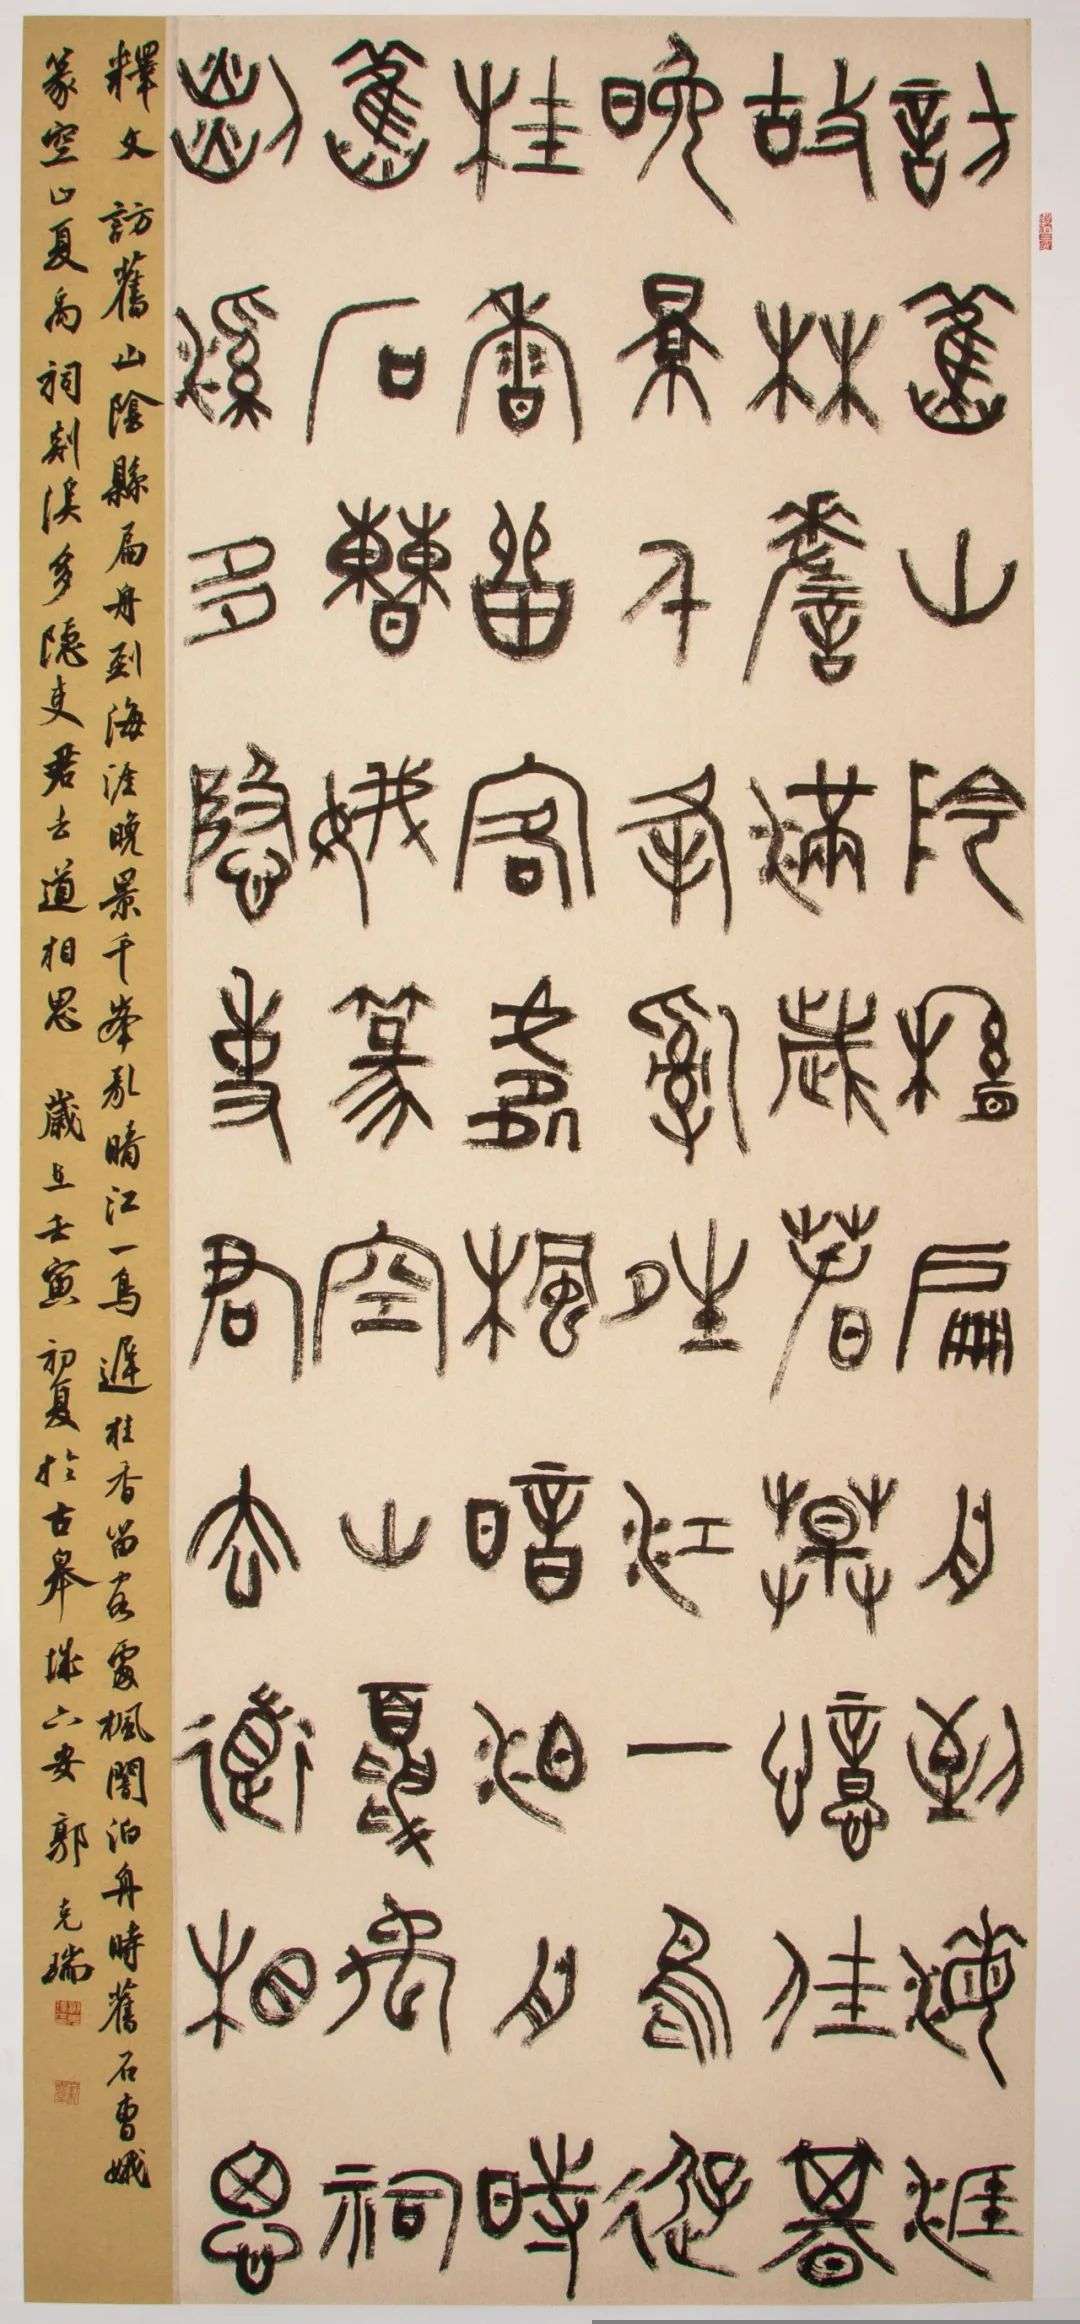 訪舊山陰縣扁舟到海涯
故林嗟滿歲春草憶佳期
晚景千峯亂晴江一鳥遲
桂香留客處楓暗泊舟時
舊石曹娥篆空山夏禹祠
剡溪多隱吏君去道相思
釋文 訪舊山陰縣扁舟到海涯晚景千峯亂晴江一鳥遲桂香留客處楓闇泊舟時舊石曹娥
篆空山夏禹祠剡溪多隱吏君去道相思 歲壬寅初夏於古皋城六安郭克瑞